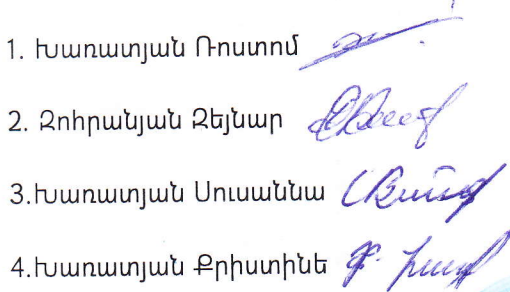 1. Խառատյան Ռոստոմ
2. Զոհրանյան Զեյնար
3.Խառատյան Սուսաննա
4.Խառատյան Քրիստինե